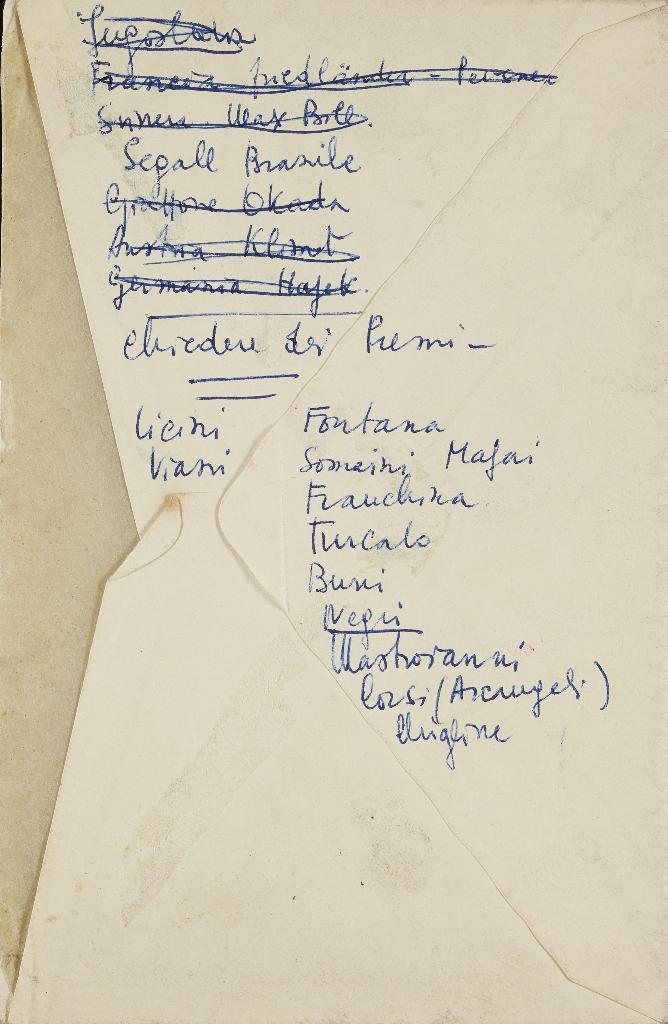 Jugoslavia
Francia Friedländer - Pevsner
Svizzera Max Bill.
Segall Brasile
Giappone Okada
Austria Klimt
Germania Hajek.
chiedere dei Premi -
Licini
Viani
Fontana
Somaini Mafai
Franchina
Turcato
Burri
Negri
Mastroianni
Corsi (Arcangeli)
Chighine